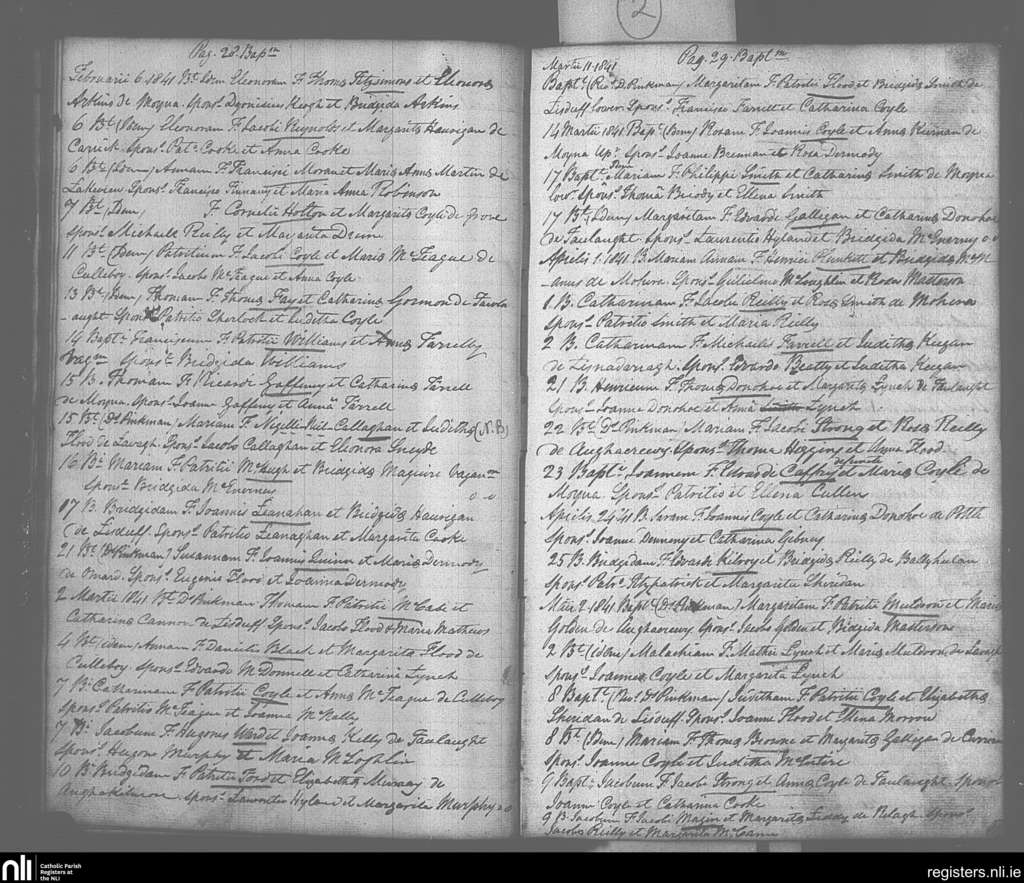 2
Pag. 28. Bapm
Februarii 6. 1841 Bt. Idem Eleonoram F. Thomæ Fitzsimons et Eleonora
Arkins de Moyna. Sponsrs. Dyonisius Keogh et Bridgida Arkins
6 Bt. (Idem) Eleonoram F. Jacobi Reynolds et Margarita Hourigan de
Carrick. Sponsrs. Patt. Cooke et Anna Cooke
6 Bt. (Idem) Annam F. Francisci Moran et Maria Anna Martin de
Lakeview Sponsrs. Francisco Finnany et Maria Anna Robinson
9 Bt. (Idem) F. Cornelii Holton et Margarita Coyle de Grove
Sponsrs. Michaele Reilly et Margarita Drum
11 Bt. (Idem) Patritium F. Jacobi Coyle et Maria McTeague de
Culleboy. Sponsrs. Jacobo McTeague et Anna Coyle
13 Bt. (Idem) Thomam F. Thomæ Fay et Catharina Gormon de Faula
-aught. Sponsrs. Patritio Sherloch et Juditha Coyle
14 Bapt. Franciscum F. Patritii Williams et Anna Farrelly
Vagm Sponsr. Bridgida Williams
15 B. Thomam F. Ricardi Gaffeny et Catharina Tirrell
de Moyna. Sponsrs. Joanne Gaffeny et Anna Tirrell
15 Bt. (Ds. Pinkman) Mariam F. Callaghan et Juditha (N.B)
Flood de Lavagh. Sponsrs. Jacobo Callaghan et Elionora Sneyde
16 Bt. Mariam F. Patritii McHugh et Bridgida Maguire Vagan
Sponsr. Bridgida McEnerney
17 B. Bridgidam F. Joannis Leanahan et Bridgida Hourigan
(de Lisduff. Sponsrs. Patritio Leanaghan et Margarita Cooke
21 Bt. (Ds. Pinkman) Susannam F. Joannis Quinn et Maria Dermody
de Omard. Sponsrs. Eugenio Flood et Joanna Dermody
2 Martii 1841 Bt. Ds. Pinkman Thomam F. Patritii McCabe et
Catharina Cannon de Lisduff Sponsrs. Jacobo Flood & Maria Mathews
4 Bt. (idem) Annam F. Danielis Black et Margarita Flood de
Culleboy Sponsrs. Edvardo McDonnell et Catharina Lynch
7 B. Catharinam F. Patritii Coyle et Anna McTeague de Culleboy
Sponsrs. Patritio McTeague et Joanna McNally
7 Bt. Jacobum F. Hugonis Ward et Joanna Kelly de Faulaught
Sponsrs. Hugone Murphy et Maria McLoghlin
10 B. Bridgidam F. Patritii Ford et Elizabetha Murray de
Aughakilmore Sponsrs. Laurentio Hyland et Margarita Murphy
Martii 11. 1841 Pag. 29. Baptm
Bapt. (Rev. D. Pinkman) Margaritam F. Patritii Flood et Bridgida Smith de
Lisduff Lower. Sponsrs. Francisco Farrell et Catharina Coyle
14 Martii 1841 Bapt. (Idem) Rosam F. Joannis Coyle et Anna Kiernan de
Moyna Upr. Sponsrs. Joanne Brennan et Rosa Dermody
17 Bapt. Mariam F. Philippi Smith et Catharina Smith de Moyna
Lowr. Sponsrs. Thoma Briody et Ellena Smith
17 Bt. (Idem) Margaritam F. Edvardi Galligan et Catharina Donohoe
de Faulaught. Sponsrs. Laurentio Hyland et Bridgida McEnerney
Aprilis 1. 1841 B. Mariam Annam F. Henrici Plunkett et Bridgida McM
-anus de Mohera. Sponsrs. Gulielmo McLoughlin et Rosa Masterson
1 B. Catharinam F. Jacobi Reilly et Rosa Smith de Mohera
Sponsrs. Patritio Smith et Maria Reilly
2 B. Catharinam F. Michaelis Farrell et Juditha Keegan
de Lisnadarragh. Sponsrs. Edvardo Beatty et Juditha Keegan
21 B. Henricum F. Thomæ Donohoe et Margarita Lynch de Faulaught
Sponsrs. Joanne Donohoe et Anna Lynch
22 Bt. (Ds. Pinkman) Mariam F. Jacobi Strong et Rosa Reilly
de Aughacreevy. Sponsrs. Thoma Higgins et Anna Flood
23 Bapt. Joannem F. Edvardi Caffrey et Maria Coyle de
Moyna Sponsrs. Patritio et Ellena Cullen
Aprilis 24 41 B. Saram F. Joannis Coyle et Catharina Donohoe de Pottle
Sponsrs. Joanne Denneny et Catharina Gibney
25 B. Bridgidam F. Edvardi Kilroy et Bridgida Reilly de Ballyheelan
Sponsrs. Patro. Fitzpatrick et Margarita Sheridan
Maii 2. 1841 Bapt. (Ds. Pinkman) Margaritam F. Patritii Muldoon et Maria
Golden de Aughacreevy. Sponsrs. Jacobo Golden et Bridgida Masterson
2 Bt. (idem) Malachiam F. Mathei Lynch et Maria Muldoon de Lavagh
Sponsrs. Joanne Coyle et Margarita Lynch
8 Bapt. (Rev. D. Pinkman) Juditham F. Patritii Coyle et Elizabetha
Sheridan de Lisduff. Sponsrs. Joanne Flood et Elina Morrow
8 Bt. (Idem) Mariam F. Thomæ Browne et Margarita Galligan de
Sponsrs. Joanne Coyle et Juditha McEntire
9 Bapt. Jacobum F. Jacobi Strong et Anna Coyle de Faulaught. Sponsrs
Joanne Coyle et Catharina Cooke
9 B. Jacobum F. Jacobi Magin et Margarita Leddy de Relagh. Sponsrs
Jacobo Reilly et Margarita McCann
nli
Catholic Parish
Registers at
the NLI
registers.nli.ie